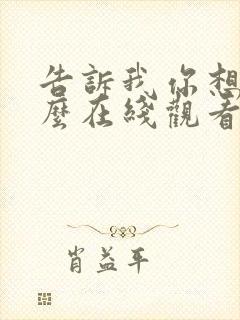 告訴我你想
麼在綫觀看
肖益平